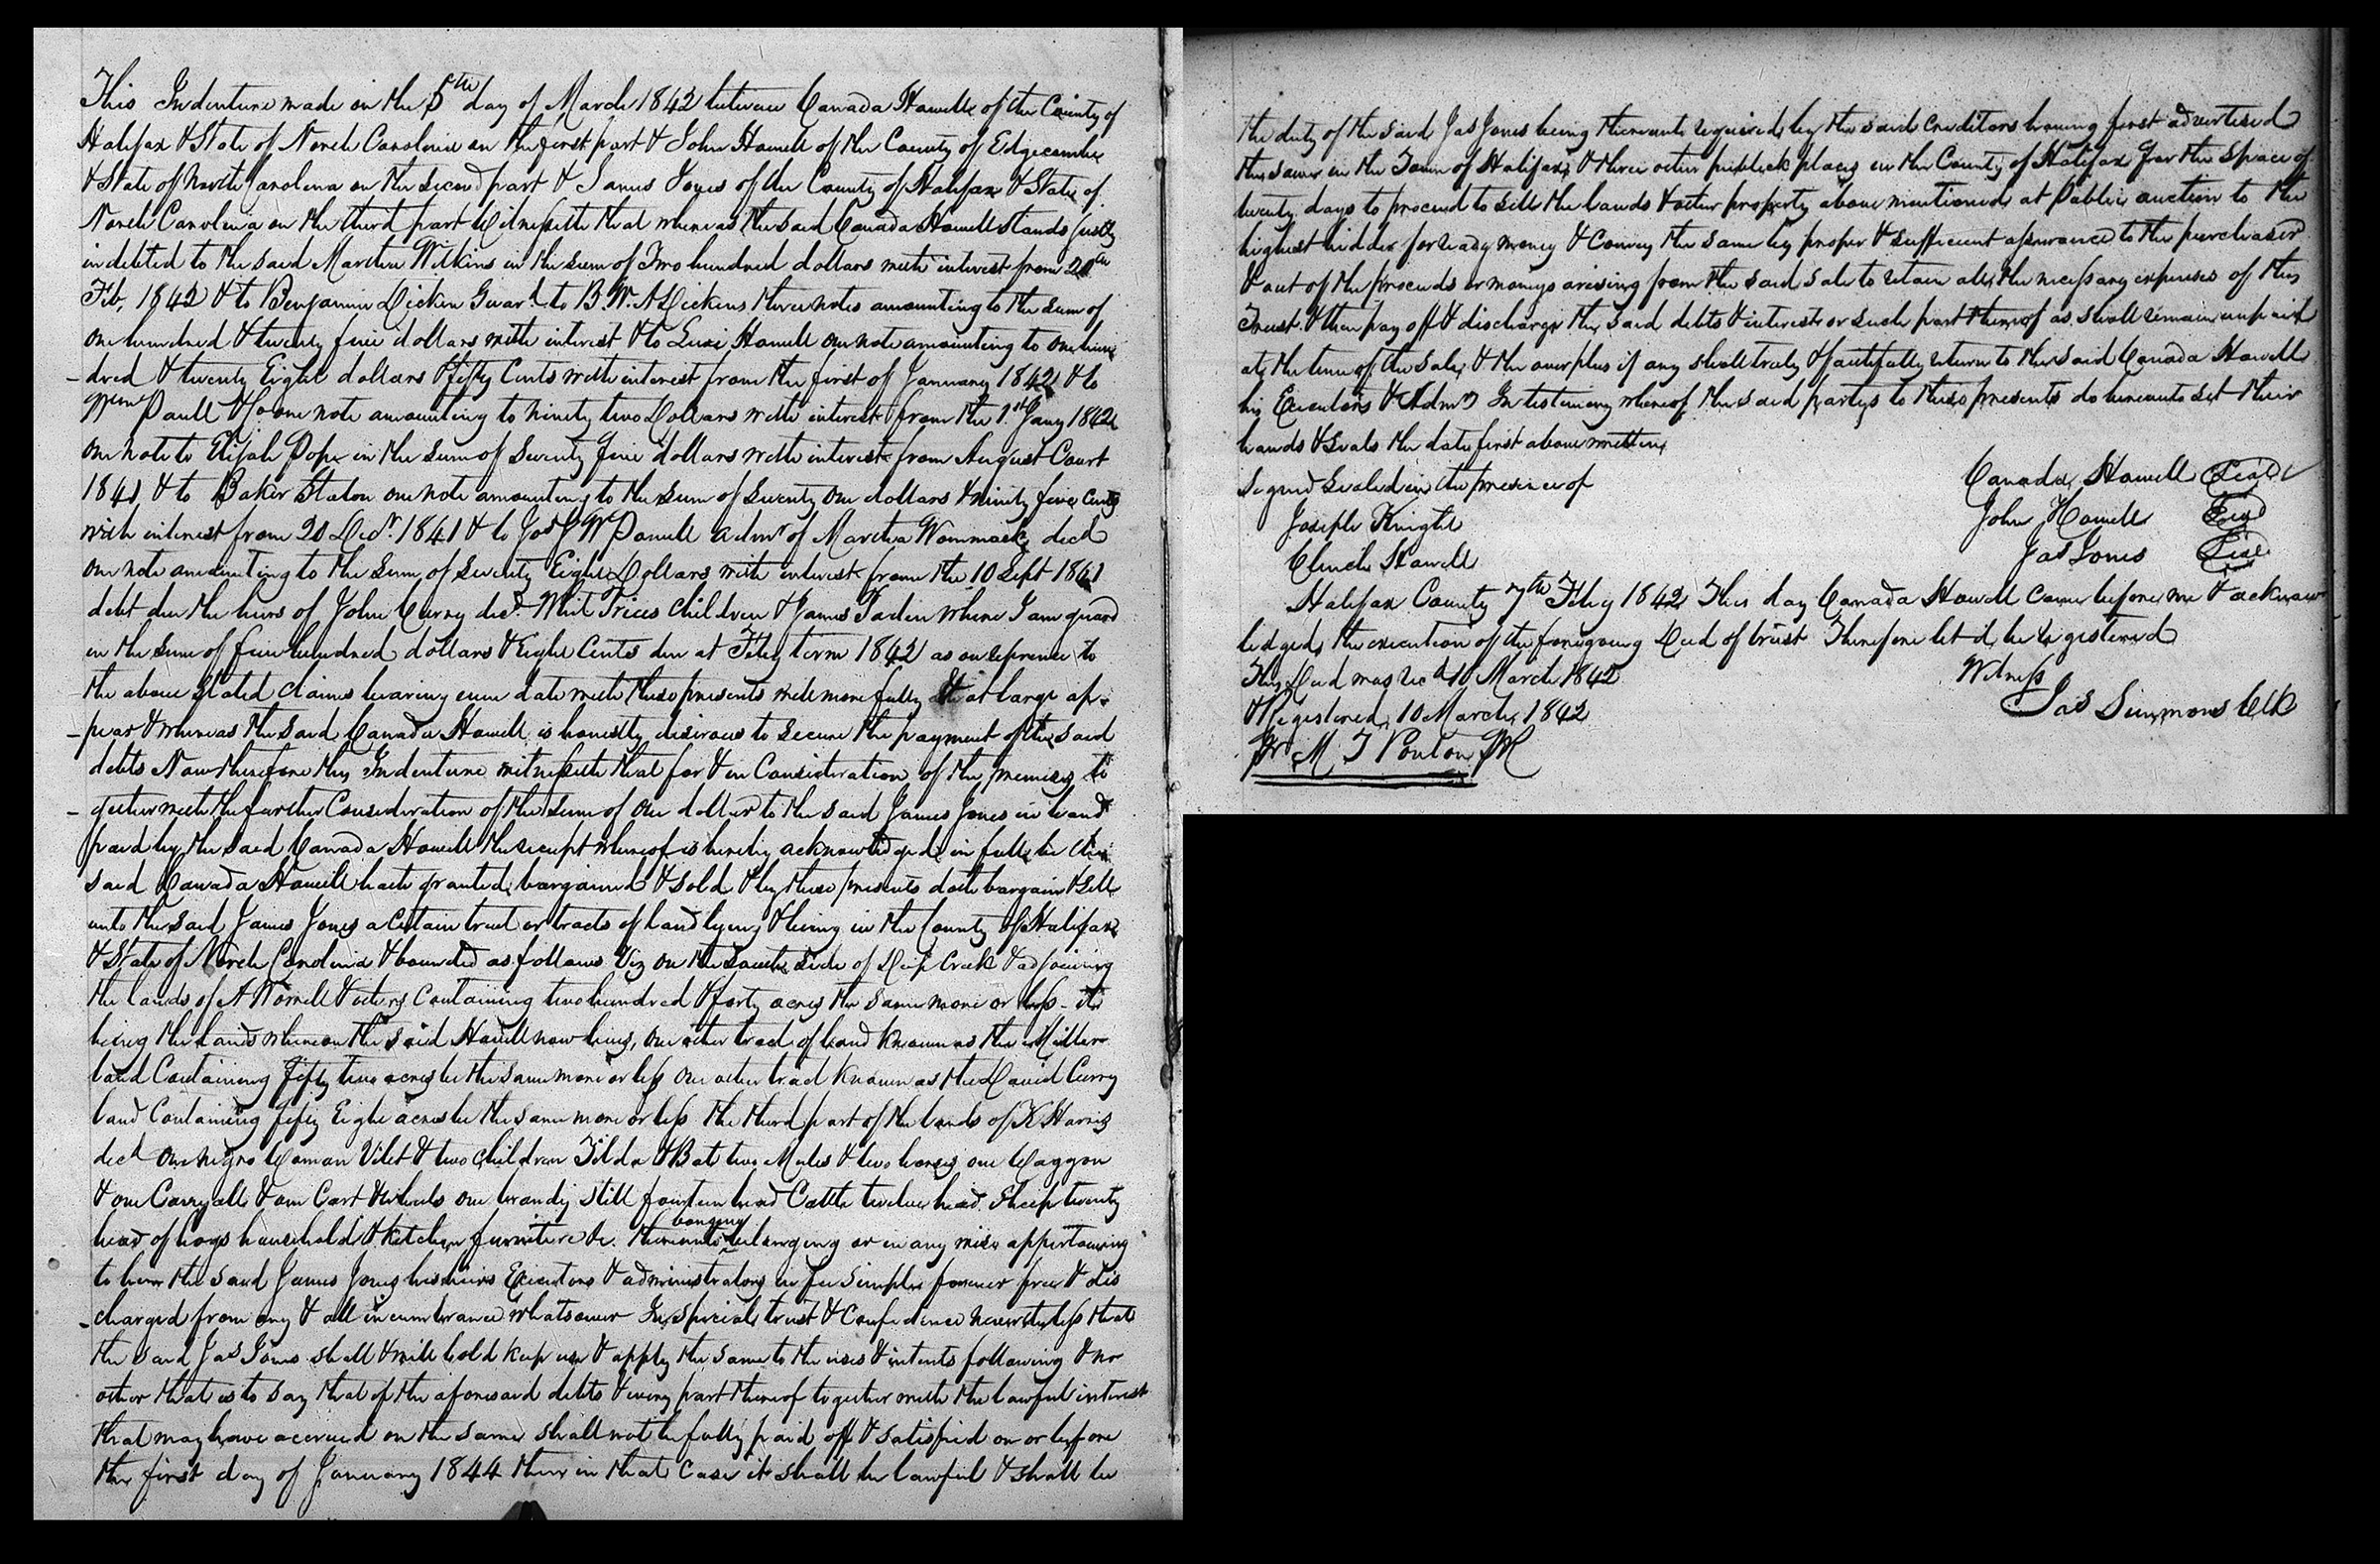 This Indenture made on the 5th day of March 1842 between Canada Howell of the County of
Halifax & State of North Carolina on the first part & John Howell of the County of Edgecombe
& State of North Carolina on the second part & James Jones of the County of Halifax & State of
North Carolina on the third part Witnesseth that whereas the said Canada Howell stands justly
indebted to the said Martha Wilkins in the sum of Two hundred dollars with interest from 20th
Feb, 1842 & to Benjamin Dicken Guard. to B. W. A Dickens three notes amounting to the sum of
one hundred & twenty five dollars with interest & to Levi Howell one note amounting to one hun
-dred & twenty Eight dollars & fifty Cents with interest from the first of January 1842 & to
Paull & Co one note amounting to ninety two Dollars with interest from the 1st Jany 1842
one note to Elijah Pope in the sum of Seventy five dollars with interest from August Court
1841 & to Baker Staton one note amounting to the sum of Seventy one dollars & ninety five Cents
with interest from 20 Decr. 1841 & to Jos J W Powell admr of Martha Wommack decd
one note amounting to the sum of Seventy Eight Dollars with interest from the 10 Sept 1841
debt due the heirs of John Curry decd. Whit Prices Children & James where I am guard
in the sum of five hundred dollars & Eight Cents due at Feby term 1842 as on reference to
the above stated claims bearing even date with these presents will more fully & at large ap-
-pear & whereas the said Canada Howell is honestly desirous to secure the payment of the said
debts Now therefore this Indenture witnesseth that for & in Consideration of the premises to
-gether with the further Consideration of the sum of one dollar to the said James Jones in hand
paid by the said Canada Howell the receipt whereof is hereby acknowledged in full he the
said Canada Howell hath granted, bargained & sold & by these presents doth bargain & sell
unto the said James Jones a certain tract or tracts of land lying & being in the County of Halifax
& State of North Carolina & bounded as follows Viz on the South side of Deep Creek & adjoining
the lands of A Worrell & others Containing two hundred & forty acres the same more or less - it
being the lands whereon the said Howell now lives, one other tract of land known as the Miller
land Containing fifty two acres be the same more or less one other tract known as the David Curry
land Containing fifty Eight acres be the same more or less the third part of the lands of K Harris
decd One negro Woman Vilet & two children Tilda & Bat two Mules & two horses one Waggon
& one Carryall & one Cart & wheels one brandy still fourteen head Cattle twelve head Sheep twenty
head of hogs household & kitchen furniture &c. thereunto belonging or in any wise appertaining
to him the said James Jones his heirs Executors & administrators in fee simple forever free & dis
-charged from any & all incumbrance whatsoever In special trust & Confidence nevertheless that
the said Jas Jones shall & will hold keep use & apply the same to the uses & intents following & no
other that is to say that if the aforesaid debts & every part thereof together with the lawful interest
that may have accrued on the same shall not be fully paid off & satisfied on or before
the first day of January 1844 then in that case it shall be lawful & shall be
the duty of the said Jas Jones being thereunto required by the said creditors having first advertised
the same in the Town of Halifax & three other publick places in the County of Halifax for the space of
twenty days to proceed to sell the lands & other property above mentioned at Public auction to the
highest bidder for ready money & Convey the same by proper & sufficient assurance to the purchaser
& out of the proceeds or moneys arising from the said sale to retain all the necessary expenses of this
Trust & then pay off & discharge the said debts & interest or such part thereof as shall remain unpaid
at the time of the sale & the overplus if any shall truly & faithfully return to the said Canada Howell
his Executors & Admrs In testimony whereof the said partys to these presents do hereunto set their
hands & seals the date first above written
Signed Sealed in the presence of
Canada Howell Seal
Joseph Knight
John Howell Seal
Howell
Jas Jones Seal
Halifax County 7th Feby 1842 This day Canada Howell came before me & acknow
ledged the execution of the foregoing Deed of trust Therefore let it be Registered
This Deed was recd 10 March 1842
Witness
& Registered 10 March 1842
Jas Simmons Clk
M T Ponton PR